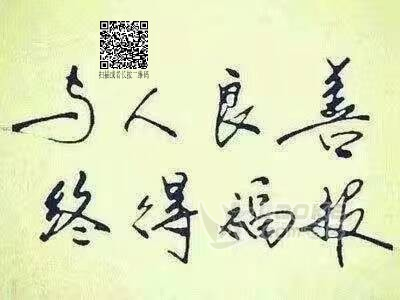 扫描或者长按二维码
与人良善
终得福报